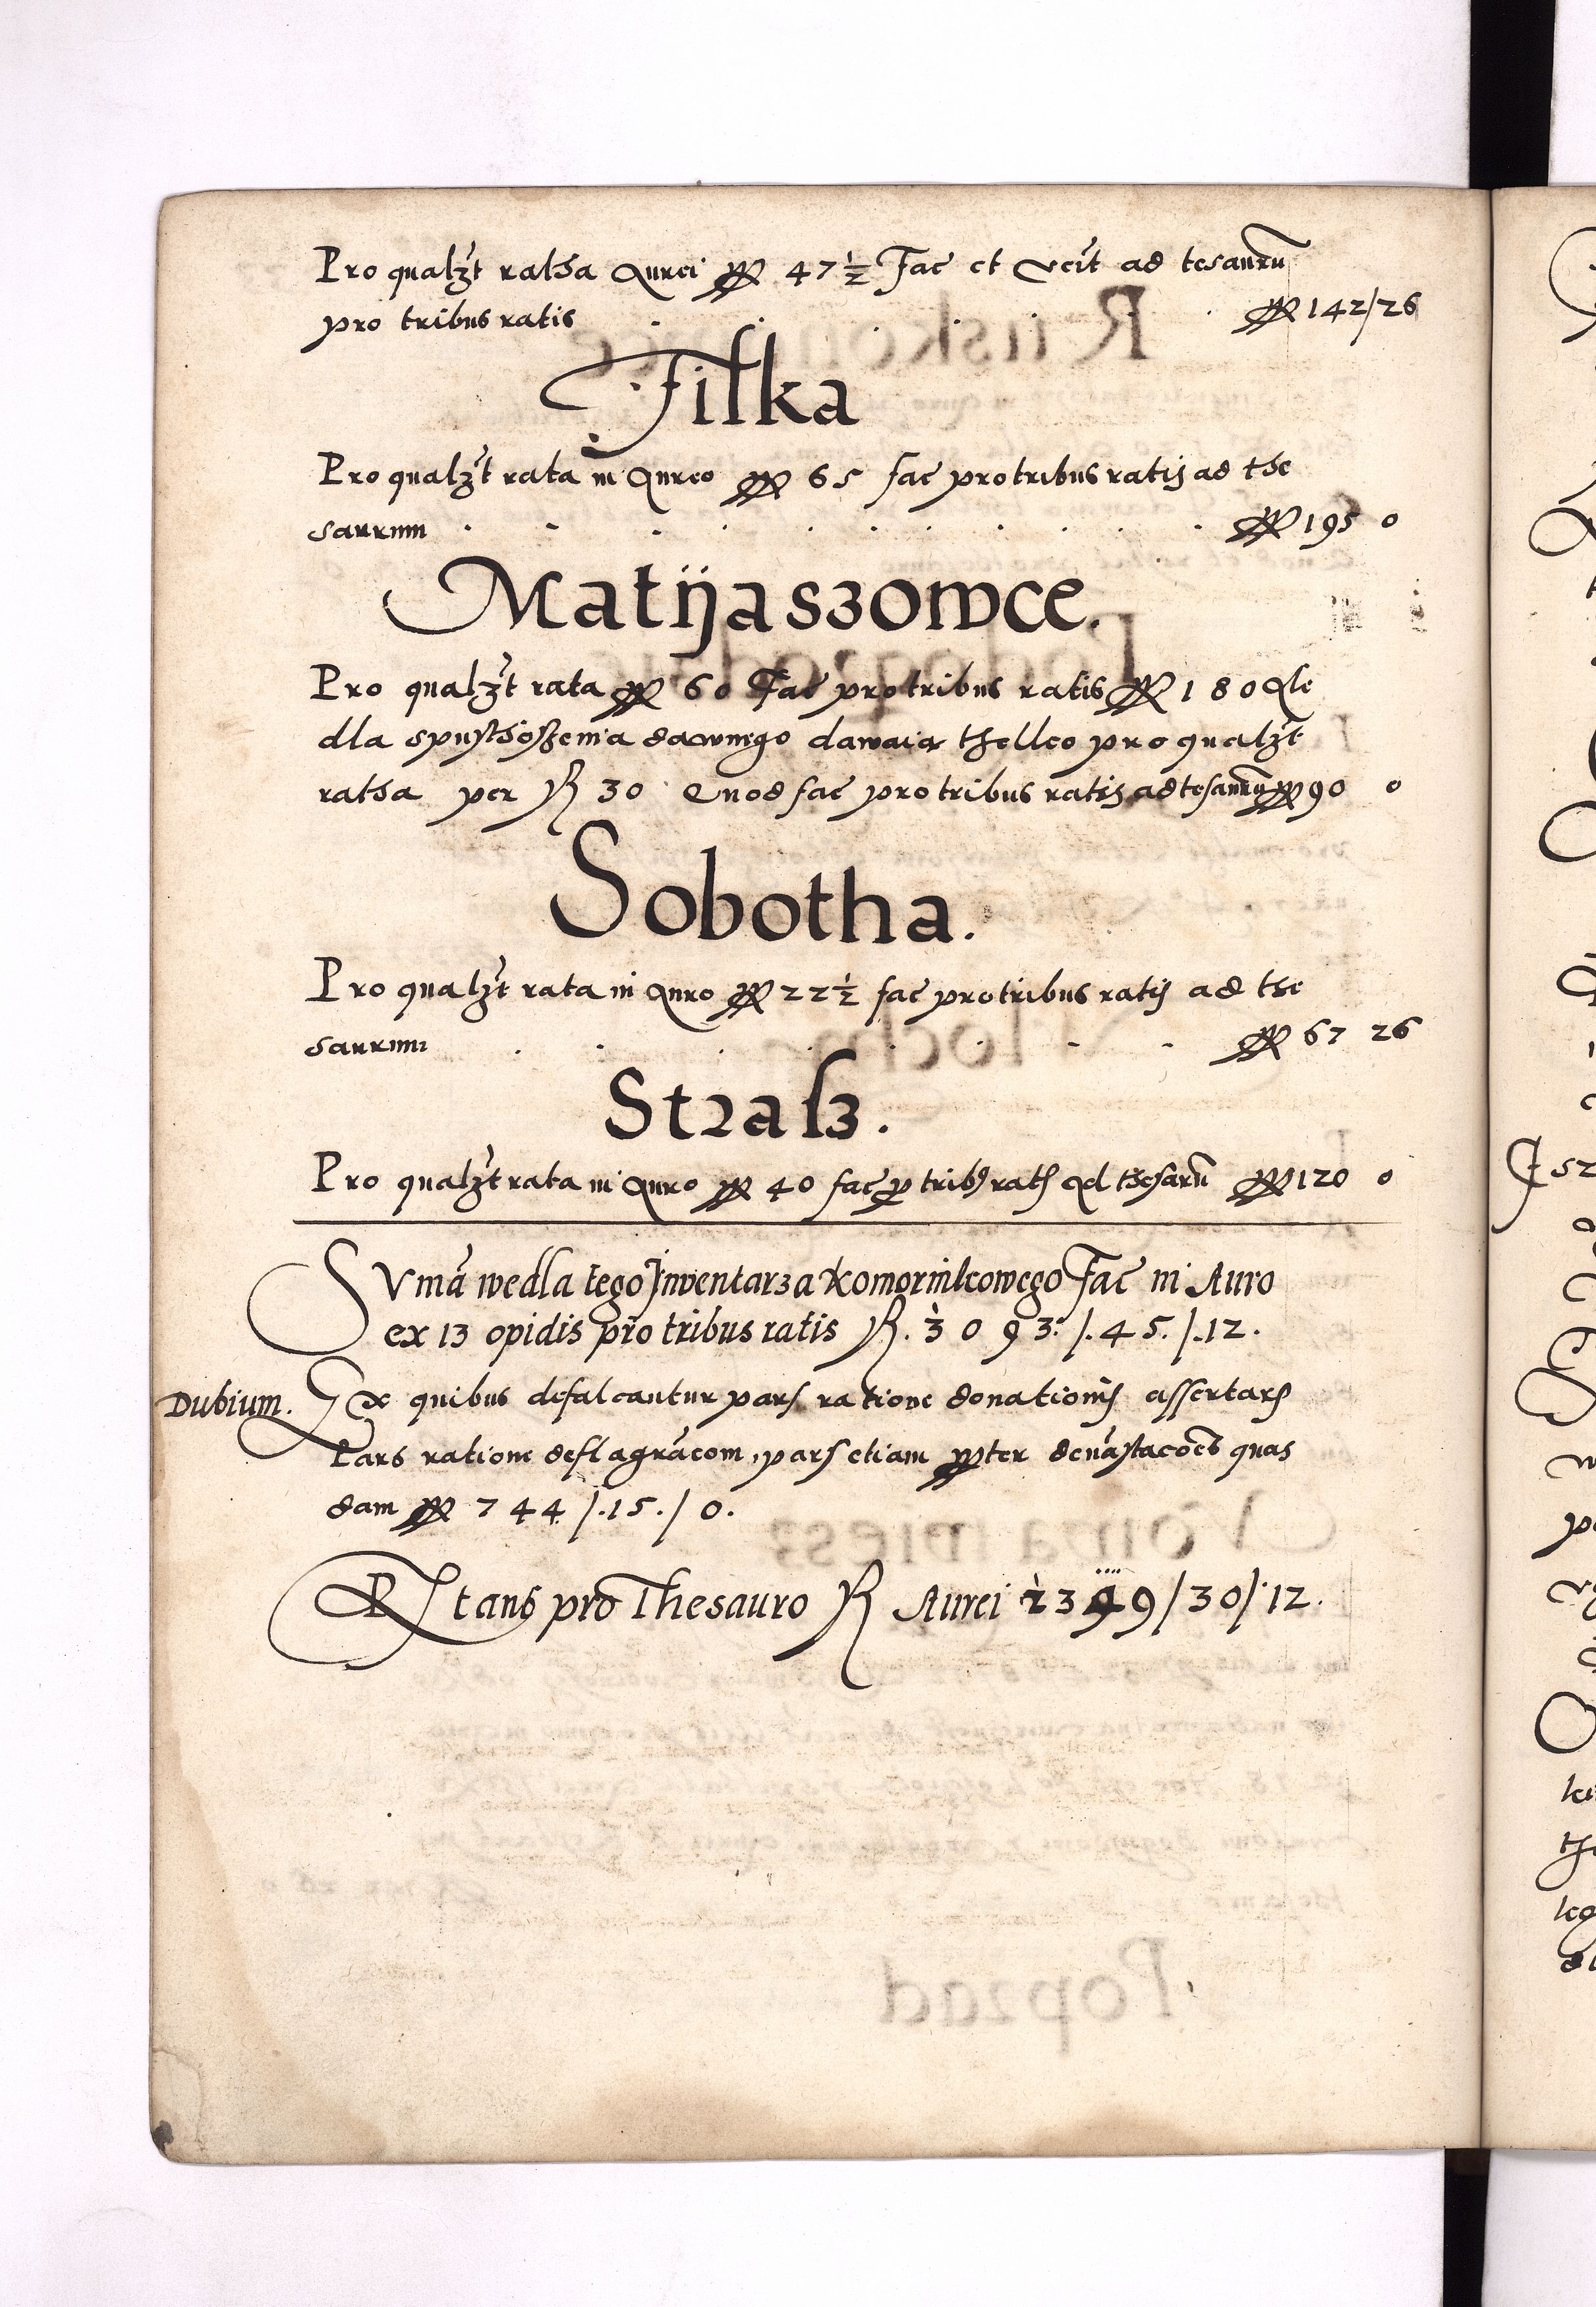 Pro qualzt ratha Aurei ff 47½ Fac et veit ad tesaurum
pro tribus ratis . . . . . . ff 142/26
Filka
Pro qualzt rata in Aureo ff 65 fac pro tribus ratis ad the
saurum . . . . . . . . . . ff 195 0
Matÿaszowce.
Pro qualzt rata ff 60 Fac pro tribus ratis ff 180 Ale
dla spusthoszenia dawnego dawaią thelko pro qualzt
ratha per ff 30 Quod fac pro tribus ratis ad tesaurum ff 90 0
Sobotha.
Pro qualzt rata in Auro ff 22½ fac pro tribus ratis ad the
saurum . . . . . . . ff 67 26
Strasz.
Pro qualzt rata in Auro ff 40 fac p tribs ratis Ad thesarum ff 120 0
Sumā wedla tego Jnwentarza Komornikowego Fac in Auro
ex 13 opidis pro tribus ratis ff. 3093./.45./.12.
Dubium. Ex quibus defalcantur pars ratione donationis assertars
Pars ratione deflagracom, pars etiam ppter devastacoes quas
dam ff 744/.15./0.
Restans pro Thesauro ff Aurei 2349/30/12.